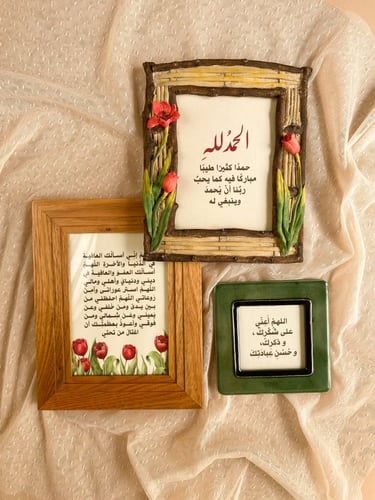 الحمدُ للهِ
حمدًا كثيرًا طيبًا
مباركًا فيه كما يحبّ
ربّنا أنْ يُحمد
وينبغي له
إني أسألك العافية
والآخرة اللهم
أسألك العفو والعافية في
ديني ودنياي وأهلي ومالي
اللهم استر عوراتي وآمن
روعاتي اللهم احفظني من
بين يديّ ومن خلفي وعن
يميني وعن شمالي ومن
فوقي وأعوذ بعظمتك أن
اغتال من تحتي
اللهمَ أعنّي
على شُكرِكَ ،
و ذكرِكَ،
و حُسْنِ عِبادَتِكَ